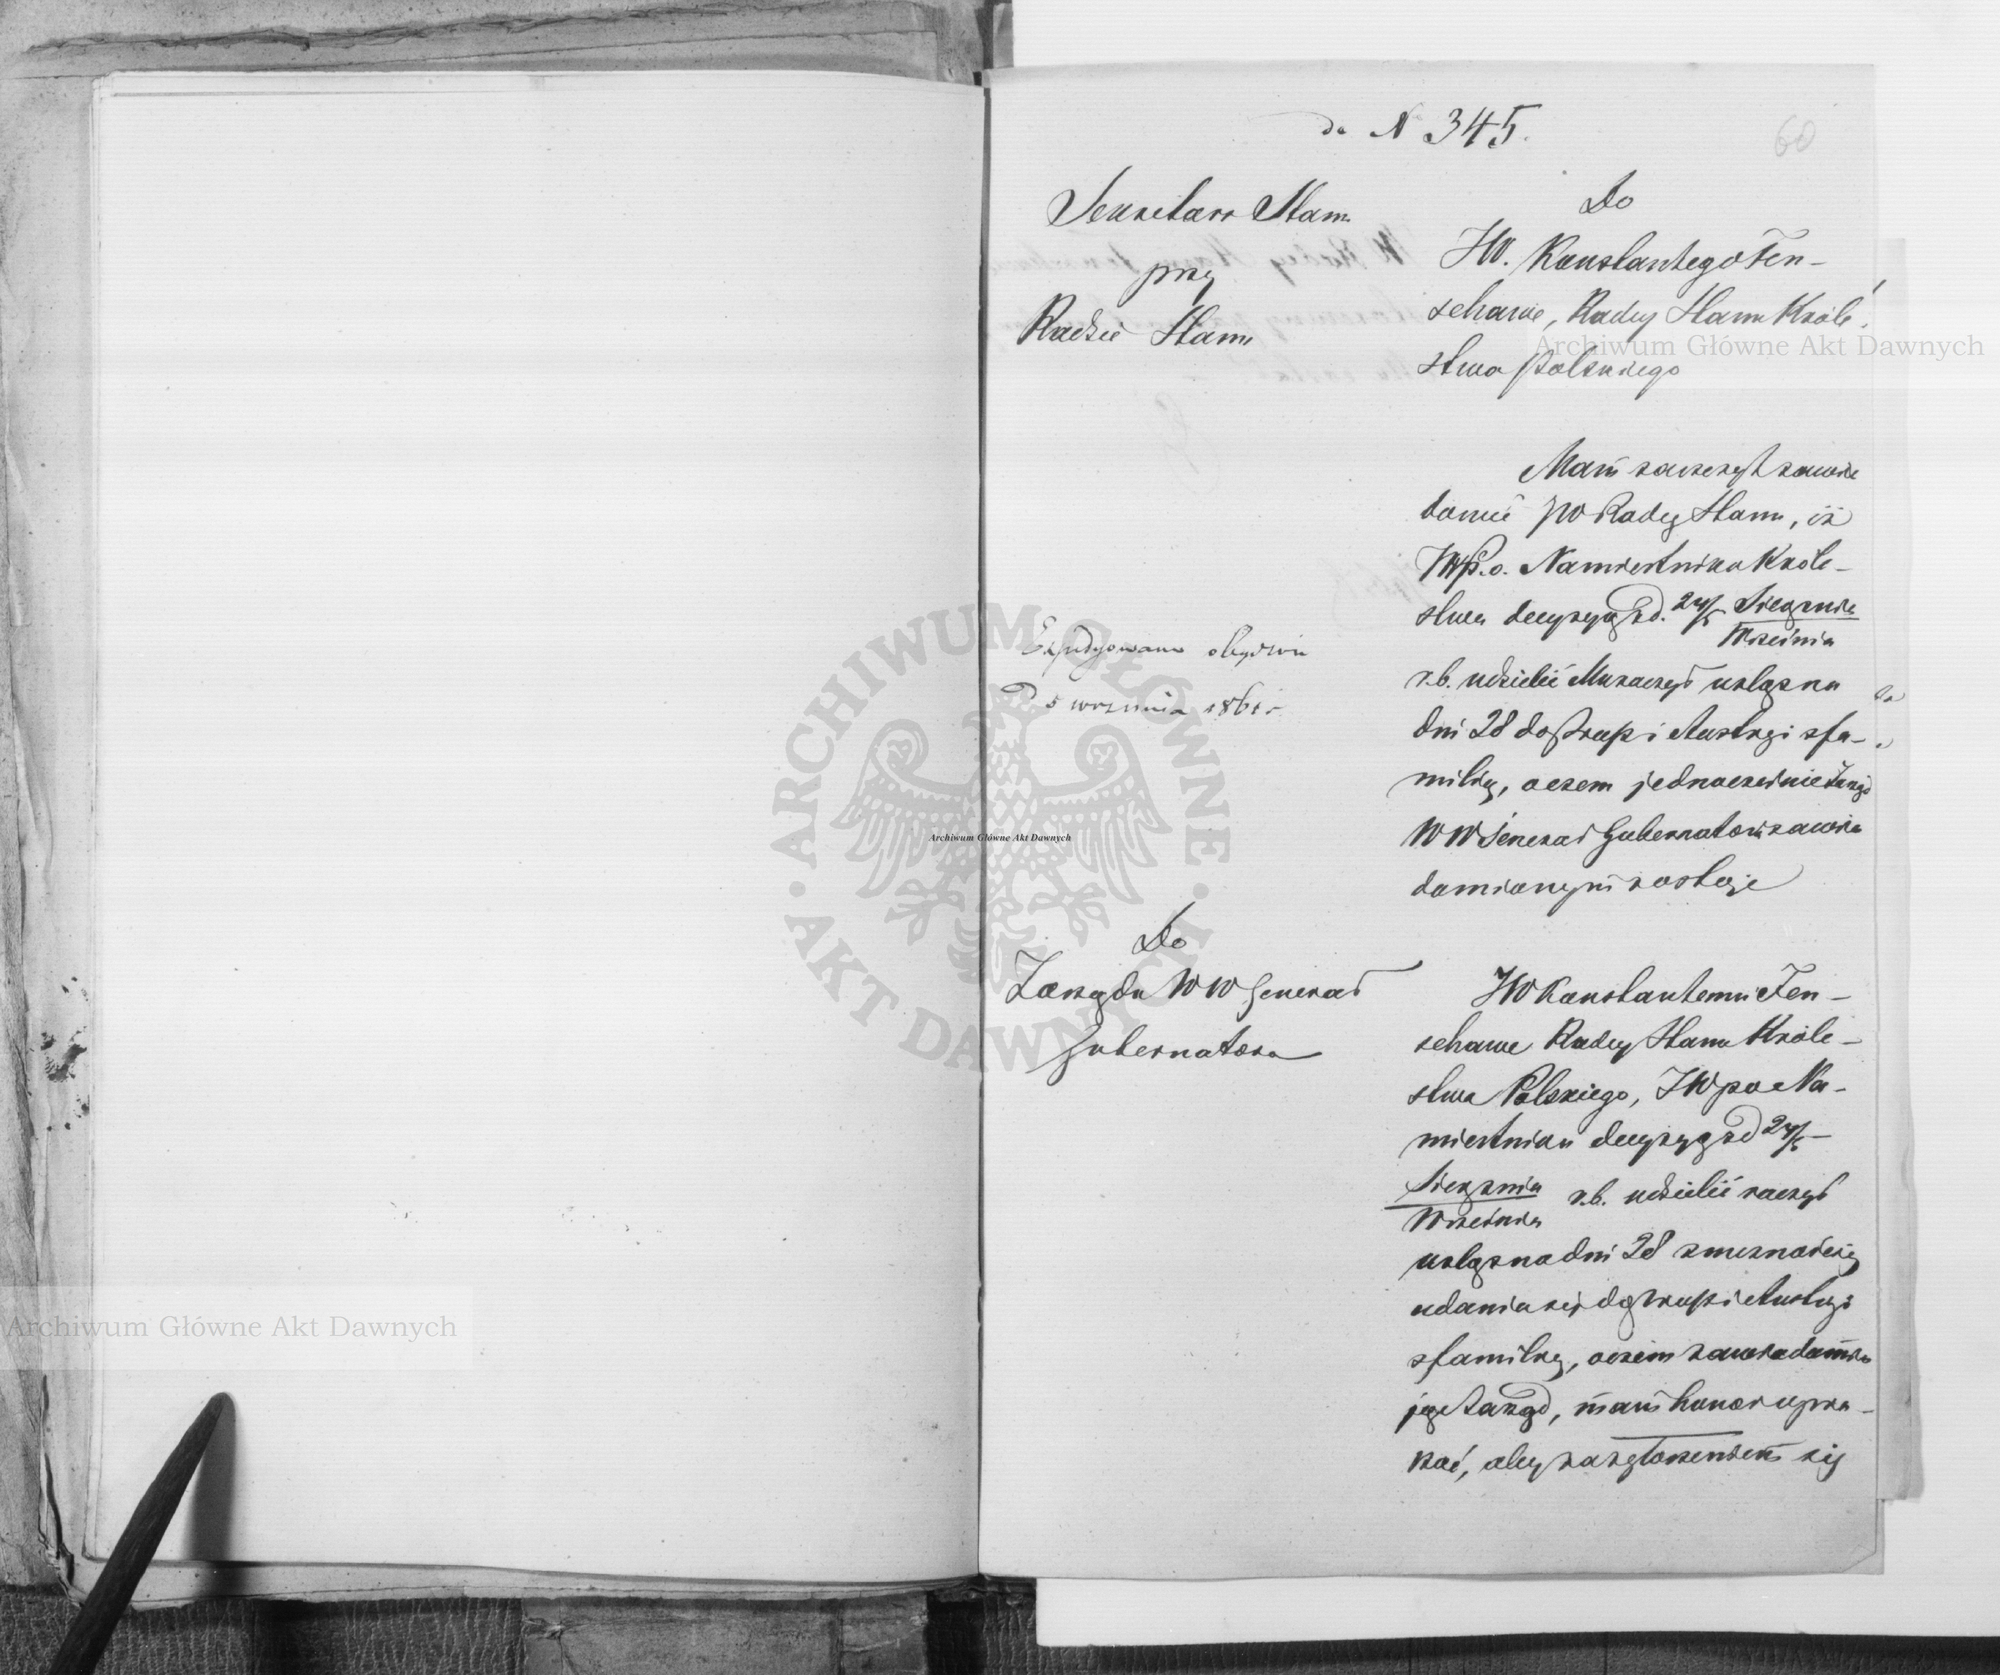 do N 345.
60
Sekretarz Stanu
przy
Radzie Stanu
Do
JW. Konstantego Fen-
schawe, Radcy Stanu Króle-
stwa Polskiego
Mam zaszczyt zawia
domić JW Radcy Stanu, iż
JW P. o. Namiestnika Króle-
stwa decyzyą z d. 24/5 Sierpnia
Września
r.b. udzielić Mu raczył urlop na
dni 28 do Prus i Austryi z fa-
milią, o czem jednocześnie Zarząd
WW Jenerał Gubernatora zawia
domionym zostaje
Expedyowano obydwie
D 5 września 1861 r
Do
Zarządu WW Generał
Gubernatora
JW Konstantemu Fen-
schawe Radcy Stanu Króle-
stwa Polskiego, JW p o Na-
miestnika decyzyą z d 24/5
Sierpnia
Września r.b. udzielić raczył
urlop na dni 28 z możnością
udania się do Prus i Austryi
z familią, o czem zawiadamia
jąc Zarząd, mam honor upra-
szać, aby za zgłoszeniem się
Archiwum Główne Akt Dawnych
Archiwum Główne Akt Dawnych
Archiwum Główne Akt Dawnych
ARCHIWUM GŁÓWNE · AKT DAWNYCH ·